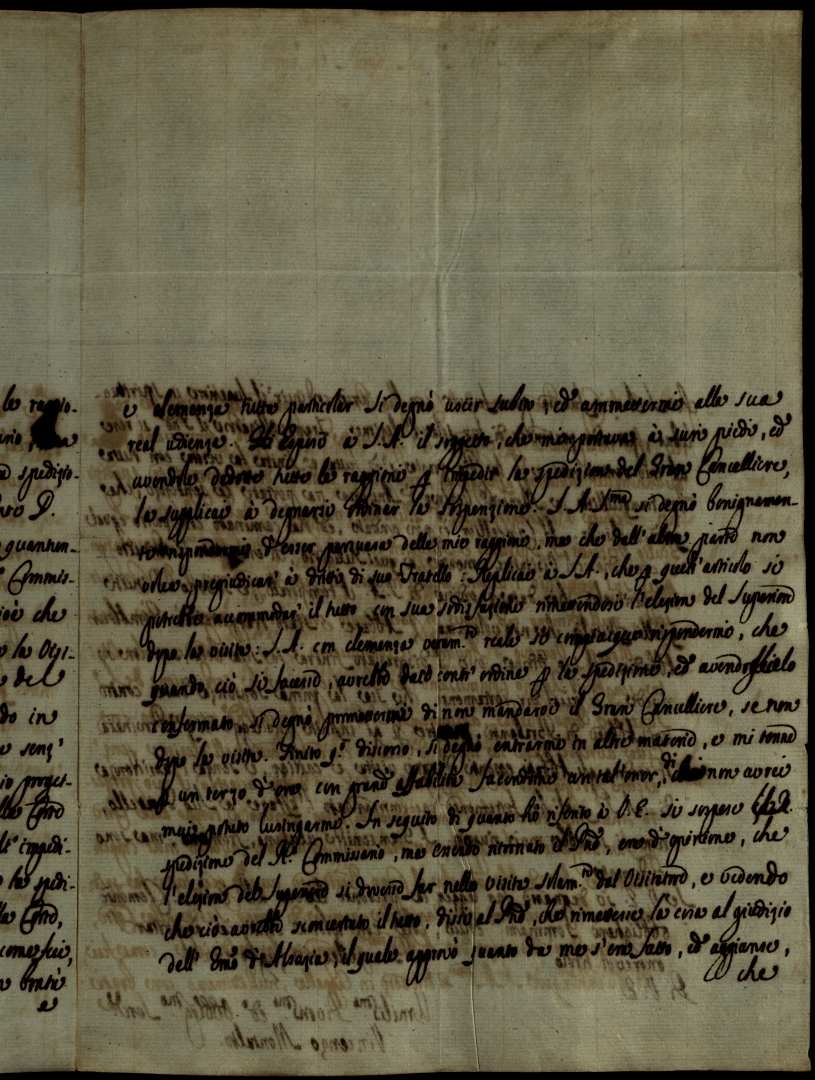 le raggio-
spedizio-
quanten-
Commis-
cioè che
la Visi-
del
do in
e senz'
io proges-
alla Corte
impedi-
la spedi-
lla Corte,
come feci,
bontà
e
e clemenza tutta particolar si degnò uscir subito, ed ammettermi alla sua
real udienza. Gli esposi à S.A. il soggetto, che mi portava à suoi piedi, ed
avendole dedotte tutte le raggioni p impedir la spedizione del Gran Cancelliere,
la supplicai à degnarsi ordinar la sospenzione. S.A.S.ma si degnò benignamen-
te rispondermi d'esser persuasa delle mie raggioni, ma che dall'altra parte non
volea pregiudicar' à dritti di suo Fratello: Replicai à S.A., che p quell'articolo si
potrebbe accommodar' il tutto con sua sodisfazione rimettendosi l'elezion del Superiore
dopo la visita: S.A. con clemenza veram.te reale si compiacque rispondermi, che
quando ciò si facesse, avrebbe dato contr'ordine p la spedizione, ed avendoglielo
confermato, si degnò promettermi di non mandarvi il Gran Cancelliere, se non
dopo la visita. Finito q.o discorso, si degnò entrarmi in altre materie, e mi tenne
p un terzo d'ora con grand' affabilità facendomi un tal onor, di che non avrei
mai potuto lusingarmi. In seguito di quanto hò riferito à V.E. si sospese la
spedizione del R. Commissario, ma essendo ritornato il Pnpe, era d'opinione, che
l'elezion del Superiore si dovesse far nella visita solem.te dal Visitatore, e vedendo
che ciò avrebbe sconcertato il tutto, dissi al Pnpe, che rimettesse la cosa al giudizio
dell' Emo d'Alsazia, il quale approvò quanto da me s'era fatto, ed aggiunse,
che